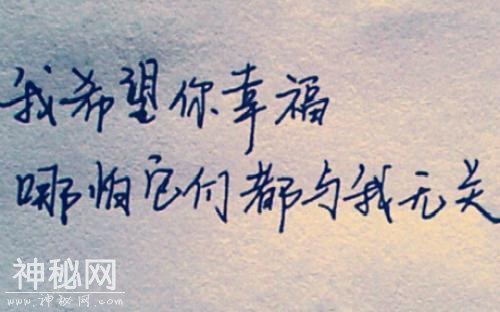 我希望你幸福
哪怕它们都与我无关
神秘网
www.神秘网.COM